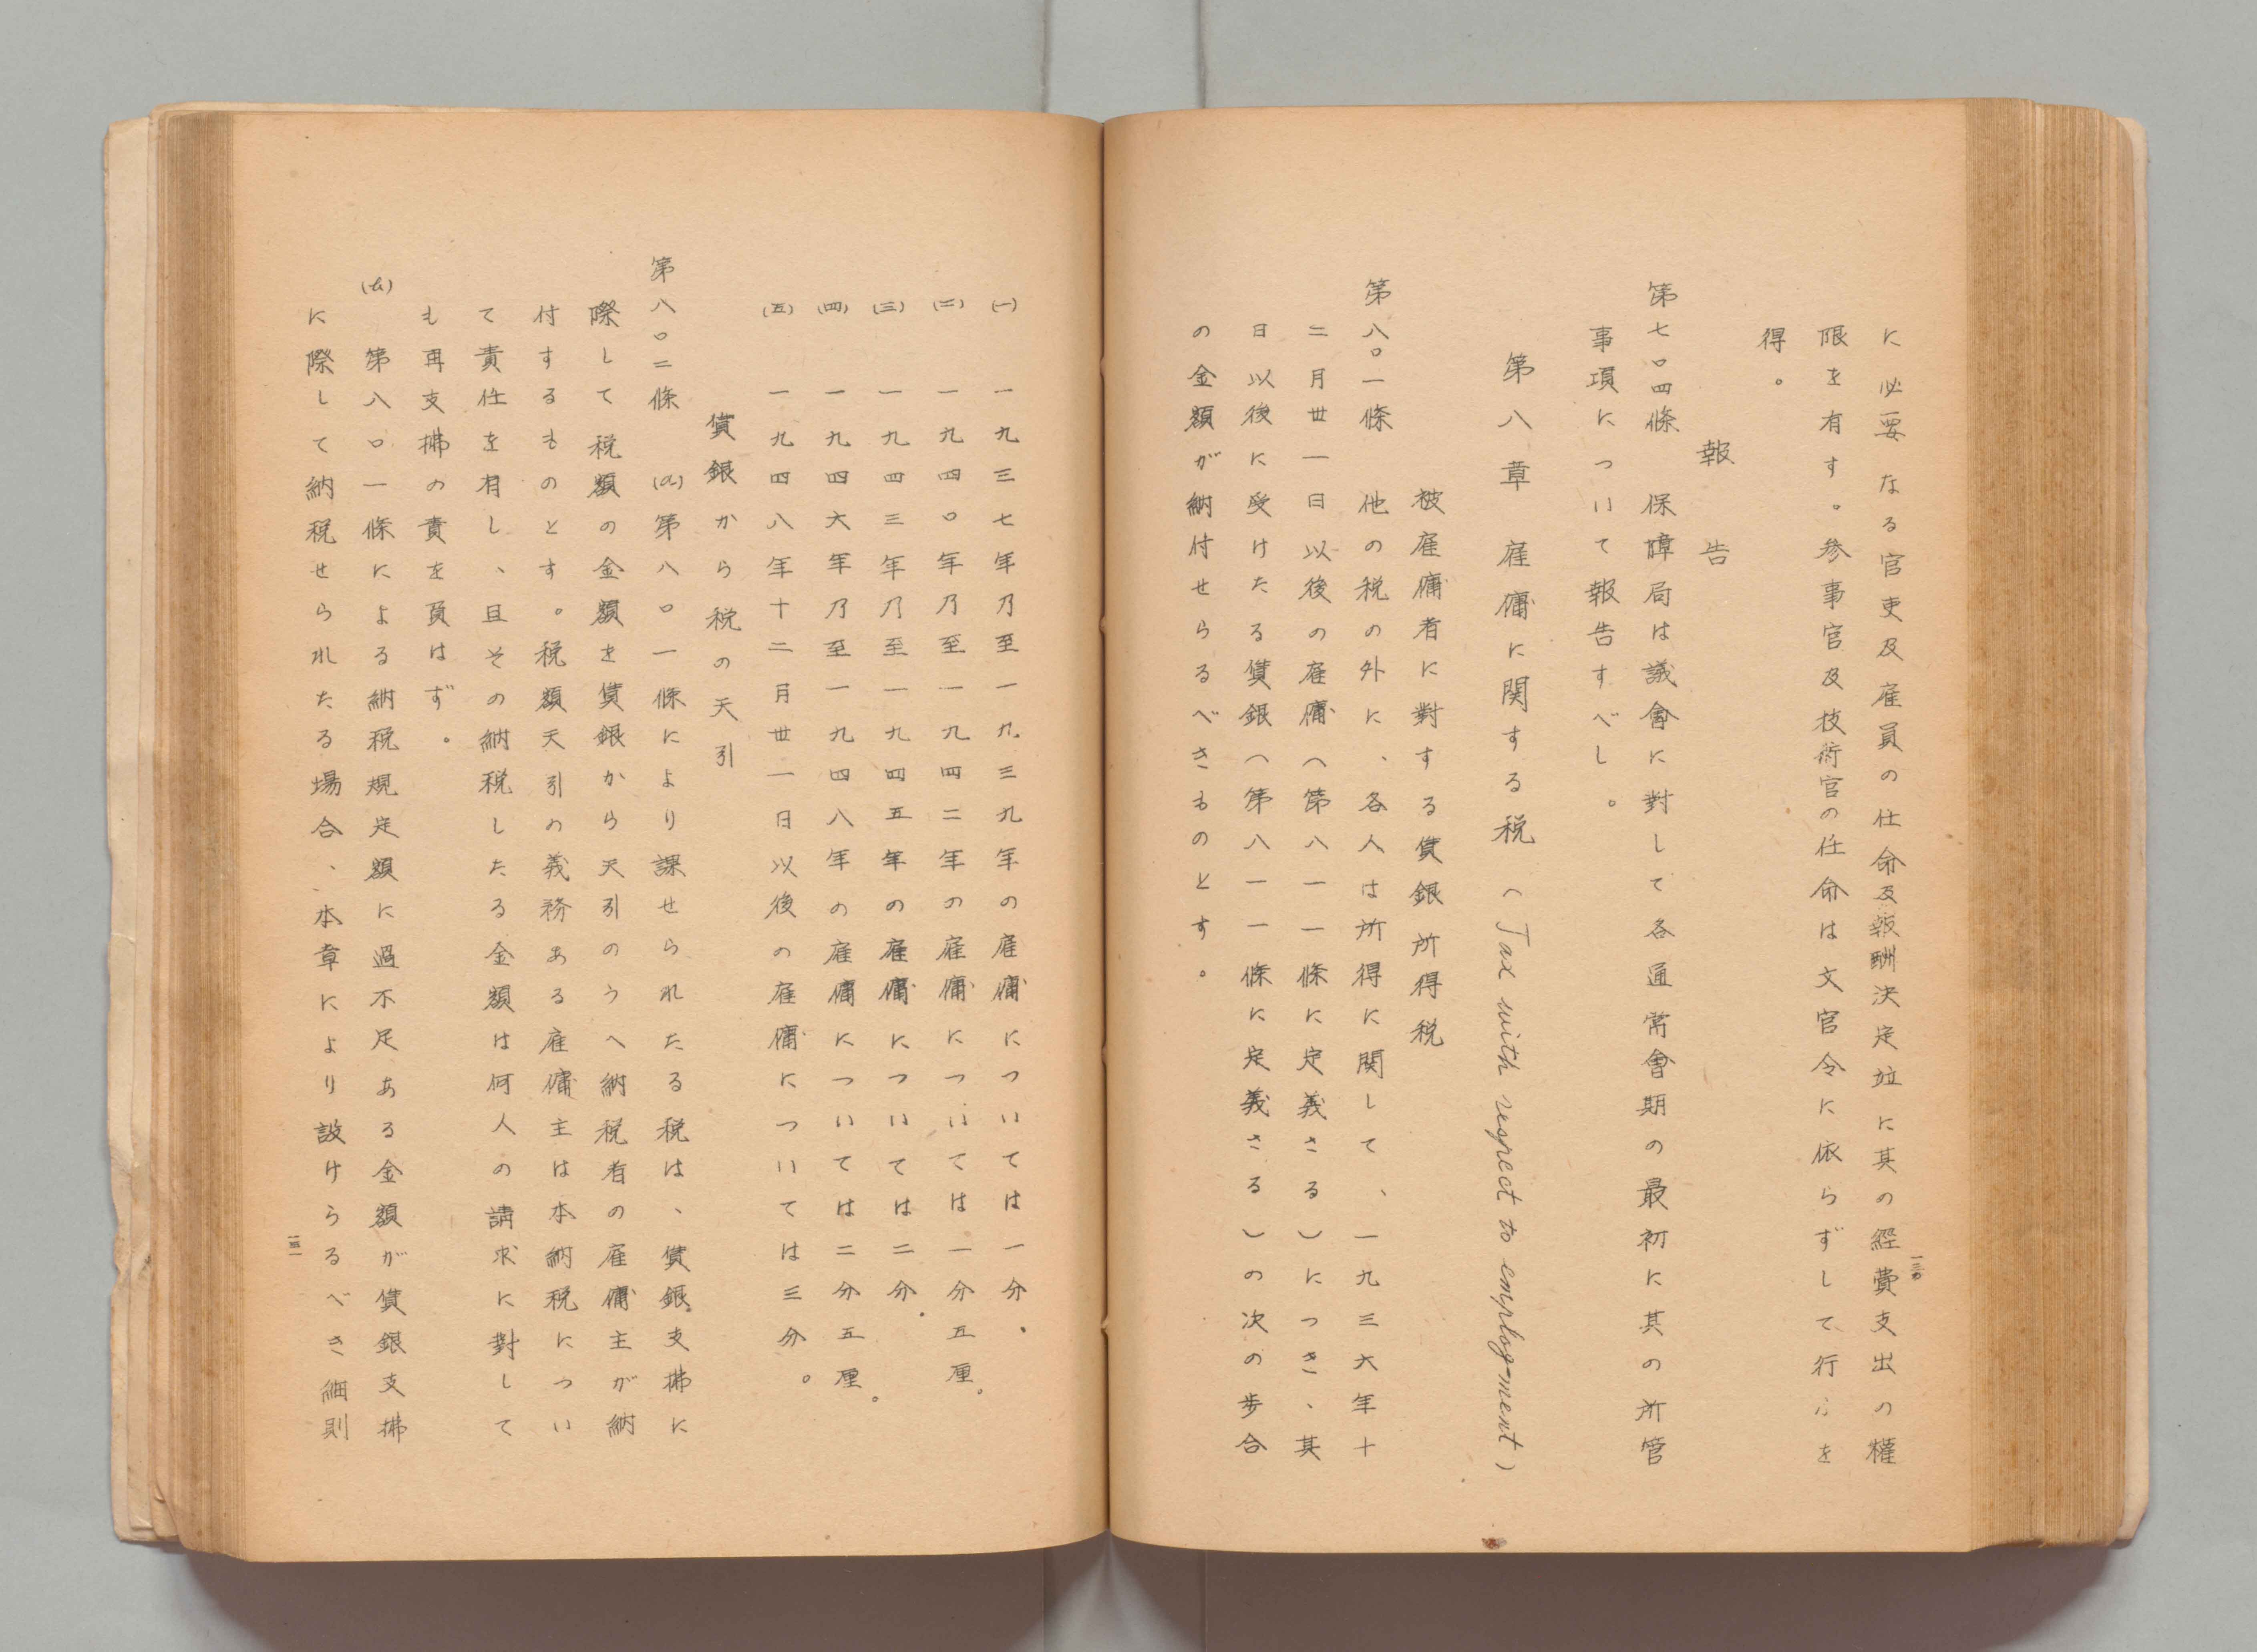 に必要なる官吏及雇員の任命及報酬決定竝に其の経費支出の權
限を有す。参事官及技術官の任命は文官令に依らずして行ふを
得。
報告
第七〇四條 保障局は議會に對して各通常會期の最初に其の所管
事項について報告すべし。
第八章 雇傭に関する税(Tax with respect to employ-ment)
被雇傭者に對する賃銀所得税
第八〇一條 他の税の外に、各人は所得に関して、一九三六年十
二月丗一日以後の雇傭(第八一一條に定義さる)につき、其
日以後に受けたる賃銀(第八一一條に定義さる)の次の歩合
の金額が納付せらるべきものとす。
一三〇
(一) 一九三七年乃至一九三九年の雇傭については一分。
(二) 一九四〇年乃至一九四二年の雇傭については一分五厘。
(三) 一九四三年乃至一九四五年の雇傭については二分。
(四) 一九四六年乃至一九四八年の雇傭については二分五厘。
(五) 一九四八年十二月丗一日以後の雇傭については三分。
賃銀から税の天引
第八〇二條 (a)第八〇一條により課せられたる税は、賃銀支拂に
際して税額の金額を賃銀から天引のうへ納税者の雇傭主が納
付するものとす。税額天引の義務ある雇傭主は本納税につい
て責任を有し、且その納税したる金額は何人の請求に對して
も再支拂の責を負はず。
(b) 第八〇一條による納税規定額に過不足ある金額が賃銀支拂
に際して納税せられたる場合、本章により設けらるべき細則
一三一